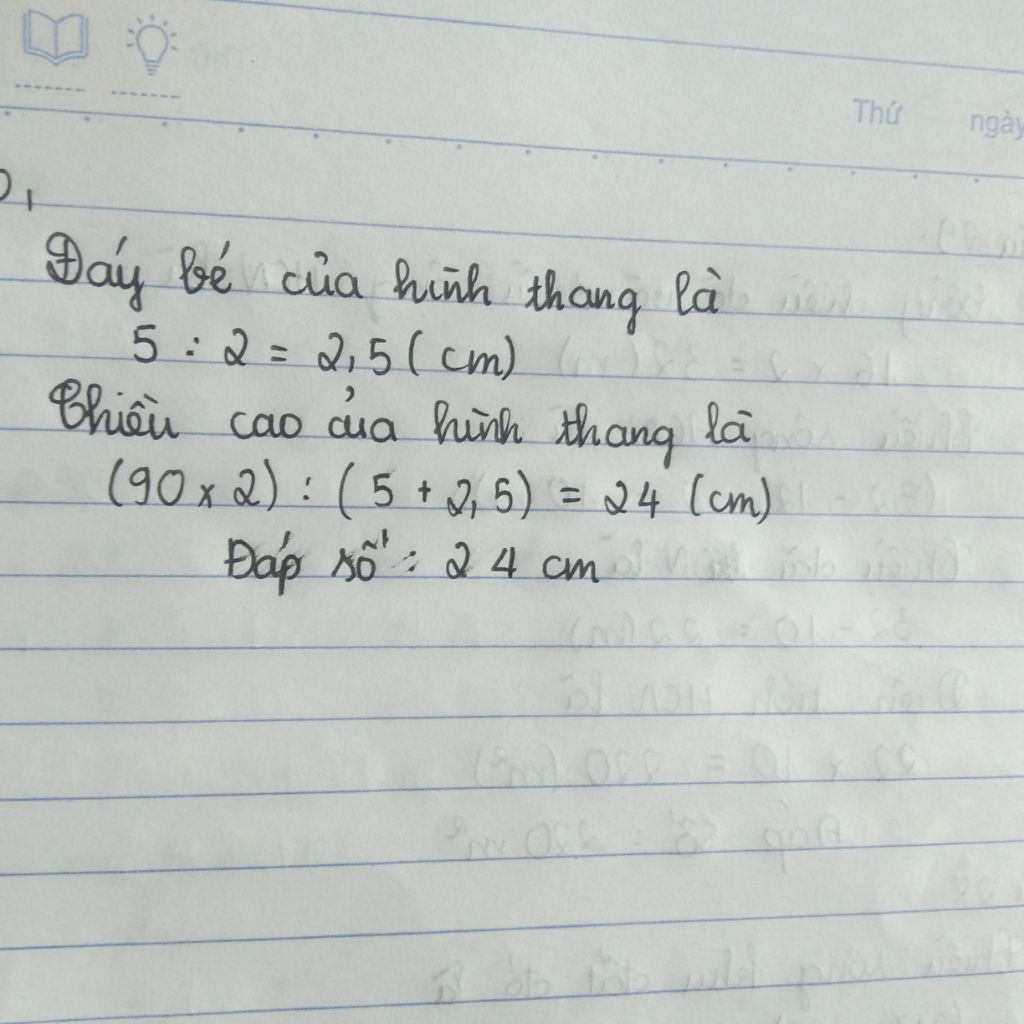 Thứ ngày
Đáy bé của hình thang là
5 : 2 = 2,5 ( cm )
Chiều cao của hình thang là
(90 x 2) : ( 5 + 2,5) = 24 (cm)
Đáp số : 24 cm